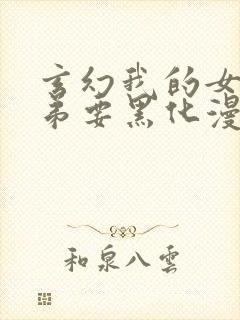 玄幻我的女
弟要黑化漫
和泉八雲